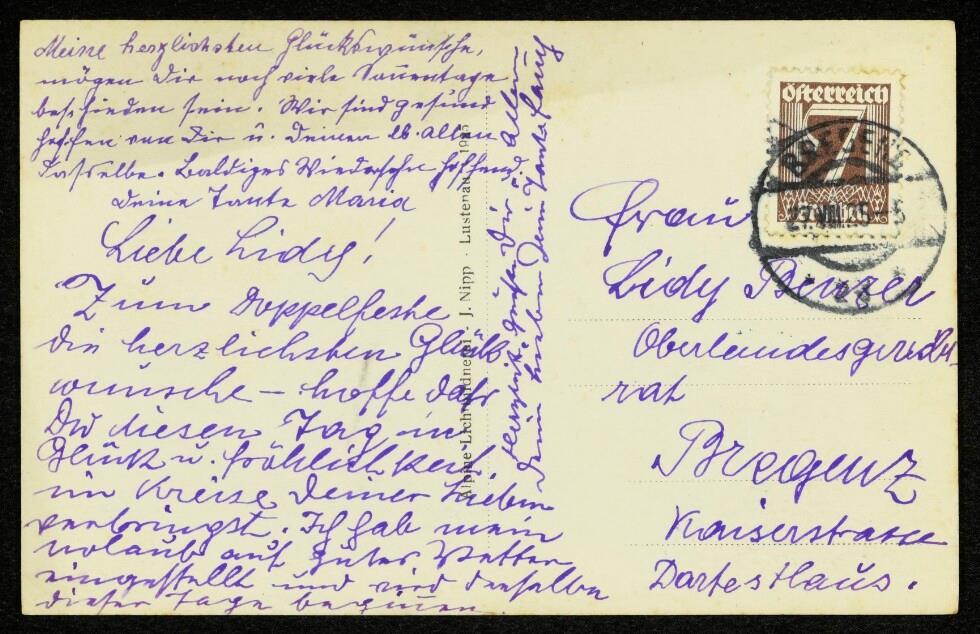 Meine herzlichsten Glückwünsche,
mögen Dir noch viele Sonnentage
beschieden sein. Wir sind gesund
hoffen von Dir u. Deinen lb. allen
dasselbe. Baldiges Wiedersehn hoffend
Deine Tante Maria
Liebe Lidy!
Zum Doppelfeste
die herzlichsten Glück
wünsche – hoffe daß
Du diesen Tag in
Glück u. Fröhlichkeit
im Kreise Deiner Lieben
verbringst. Ich hab mein
urlaub auf gutes Wetter
eingestellt und wird derselbe
dieser Tage beginnen
Herzlichst grüßen Dich u. Allen
Deine
Alpine Lichtbildnerei · J. Nipp · Lustenau
Österreich
7
BREGENZ
Frau
Lidy Benzer
Oberlandesgerichts
rat
Bregenz
Kaiserstrasse